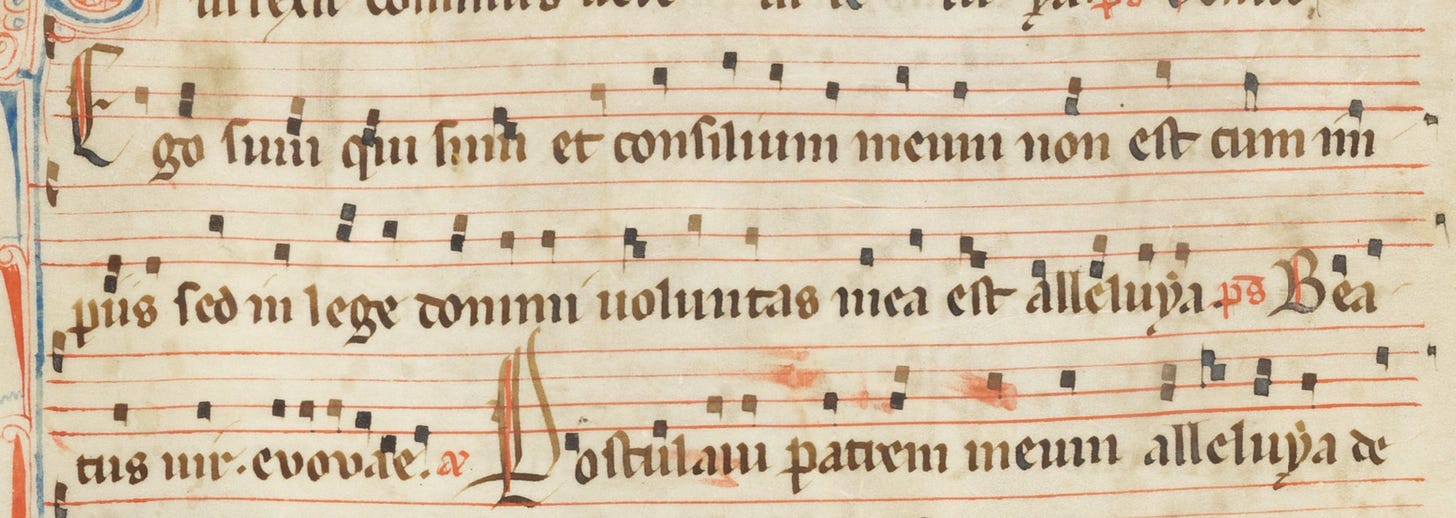 Ego sum qui sum et consilium meum non est cum im
piis sed in lege domini uoluntas mea est alleluya. ps Bea
tus uir. evovae. ae Postulaui patrem meum alleluya de